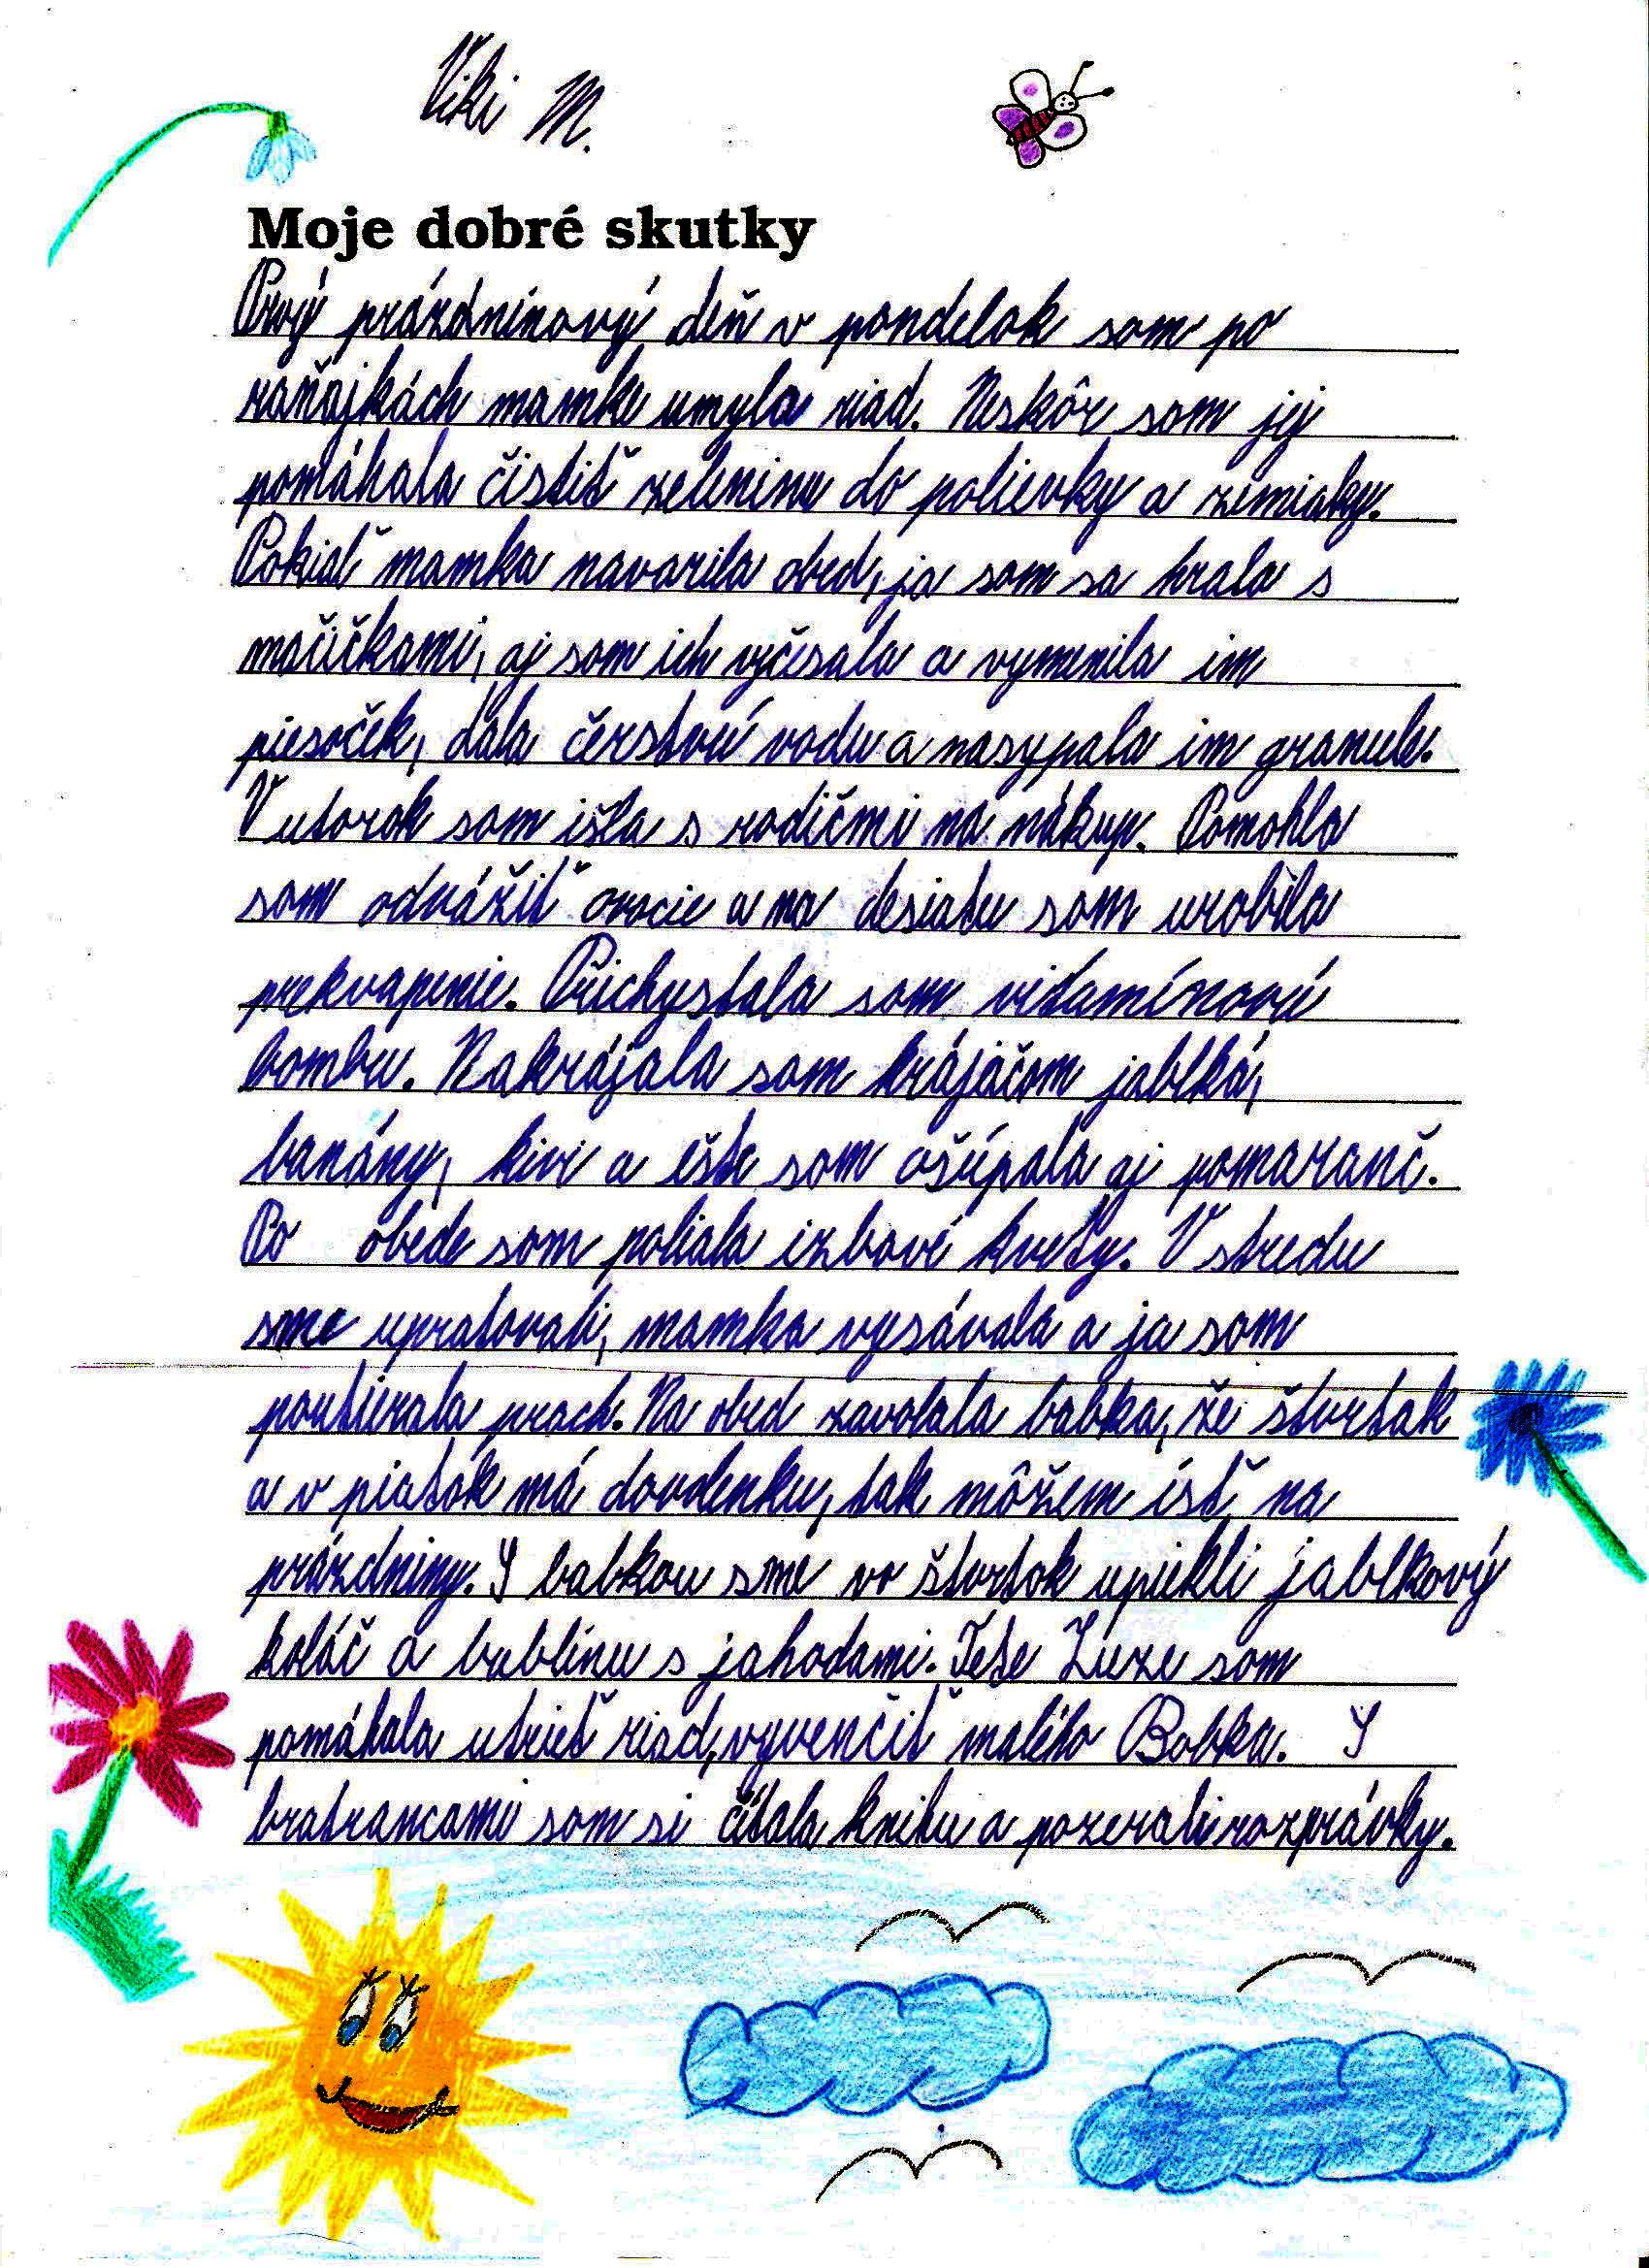 Viki M.
Moje dobré skutky
Prvý prázdninový deň v pondelok som po
raňajkách mamke umyla riad. Neskôr som jej
pomáhala čistiť zeleninu do polievky a zemiaky.
Pokiaľ mamka navarila obed, ja som sa hrala s
mačičkami, aj som ich vyčesala a vymenila im
piesoček, dala čerstvú vodu a nasypala im granule.
V utorok som išla s rodičmi na nákup. Pomohla
som odvážiť ovocie a na desiatu som urobila
prekvapenie. Prichystala som vitamínovú
bombu. Nakrájala som krájačom jablká,
banány, kivi a ešte som ošúpala aj pomaranč.
Po obede som poliala izbové kvety. V stredu
sme upratovali, mamka vysávala a ja som
poutierala prach. Na obed zavolala babka, že štvrtok
a v piatok má dovolenku, tak môžem ísť na
prázdniny. S babkou sme vo štvrtok upiekli jablkový
koláč a bublinu s jahodami. Tete Zuze som
pomáhala utrieť riad, vyvenčiť malého Bobka. S
bratrancami som si čítala knihu a pozerali rozprávky.